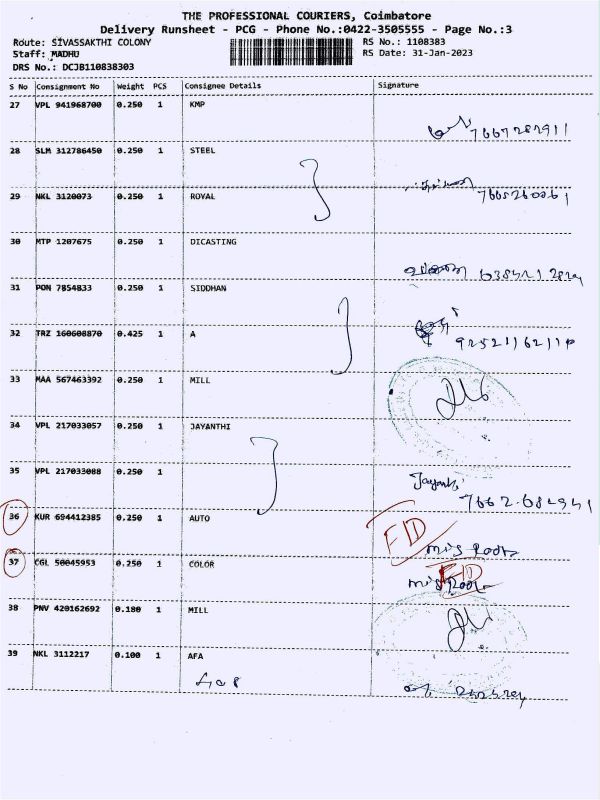 THE PROFESSIONAL COURIERS, Coimbatore
Delivery Runsheet - PCG - Phone No.:0422-3505555 - Page No.:3
Route: SIVASSAKTHI COLONY RS No.: 1108383
Staff: MADHU RS Date: 31-Jan-2023
DRS No.: DCJB110838303
S No Consignment No Weight PCS Consignee Details Signature
27 VPL 941968700 0.250 1 KMP
7667282911
28 SLM 312786450 0.250 1 STEEL
29 NKL 3120073 0.250 1 ROYAL
30 MTP 1207675 0.250 1 DICASTING
31 PON 7854833 0.250 1 SIDDHAN
32 TRZ 160608870 0.425 1 A
33 MAA 567463392 0.250 1 MILL
34 VPL 217033057 0.250 1 JAYANTHI
35 VPL 217033088 0.250 1
Jayanthi
36 KUR 694412385 0.250 1 AUTO
37 CGL 50045953 0.250 1 COLOR
38 PNV 420162692 0.180 1 MILL
39 NKL 3112217 0.100 1 AFA